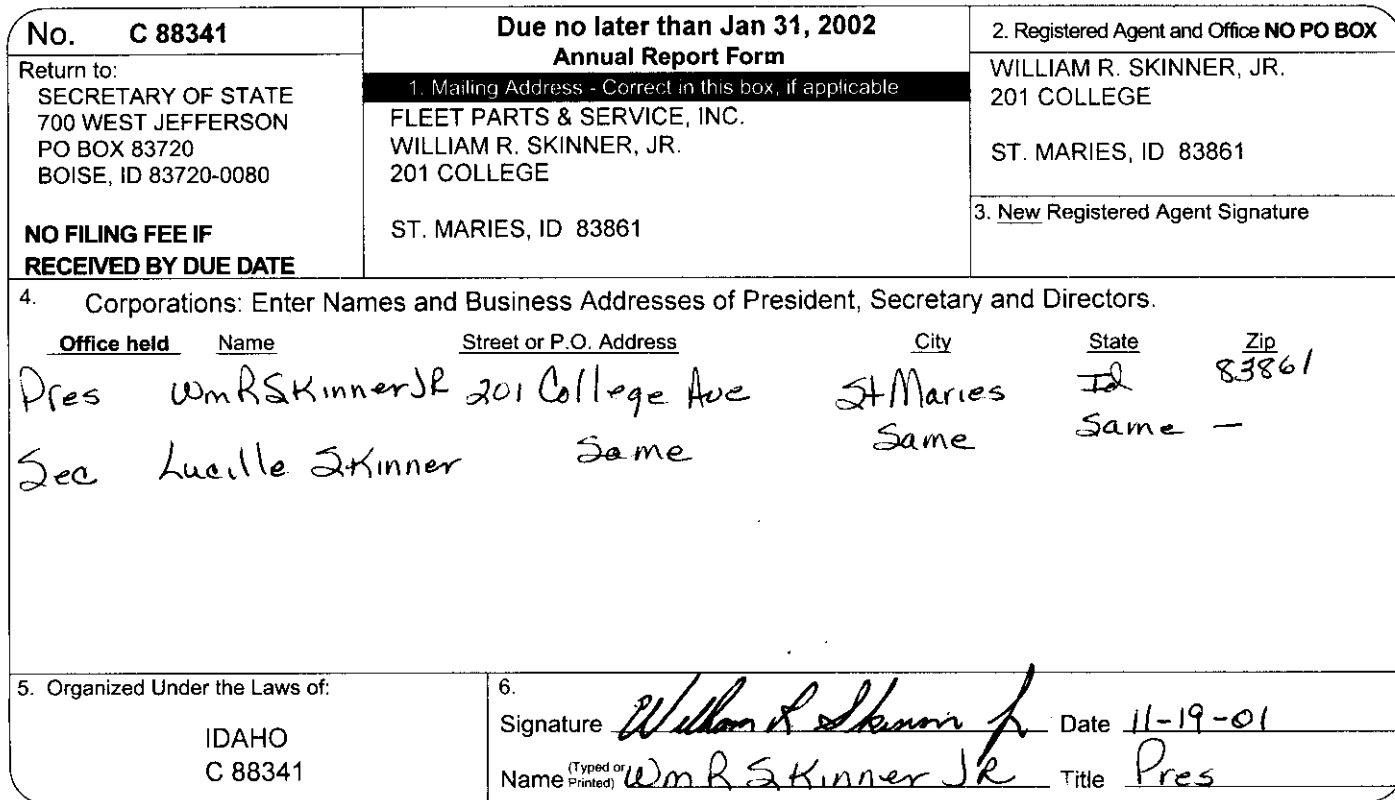 No. C 88341
Return to:
SECRETARY OF STATE
700 WEST JEFFERSON
PO BOX 83720
BOISE, ID 83720-0080
NO FILING FEE IF
RECEIVED BY DUE DATE
Due no later than Jan 31, 2002
Annual Report Form
1. Mailing Address - Correct in this box, if applicable
FLEET PARTS & SERVICE, INC.
WILLIAM R. SKINNER, JR.
201 COLLEGE
ST. MARIES, ID 83861
2. Registered Agent and Office NO PO BOX
WILLIAM R. SKINNER, JR.
201 COLLEGE
ST. MARIES, ID 83861
3. New Registered Agent Signature
4. Corporations: Enter Names and Business Addresses of President, Secretary and Directors.
Office held Name Street or P.O. Address City State Zip
Pres Wm R Skinner JR 201 College Ave St Maries Id 83861
Sec Lucille Skinner Same Same Same —
5. Organized Under the Laws of:
IDAHO
C 88341
6.
Signature William R Skinner Jr Date 11-19-01
Name (Typed or Printed) Wm R Skinner JR Title Pres